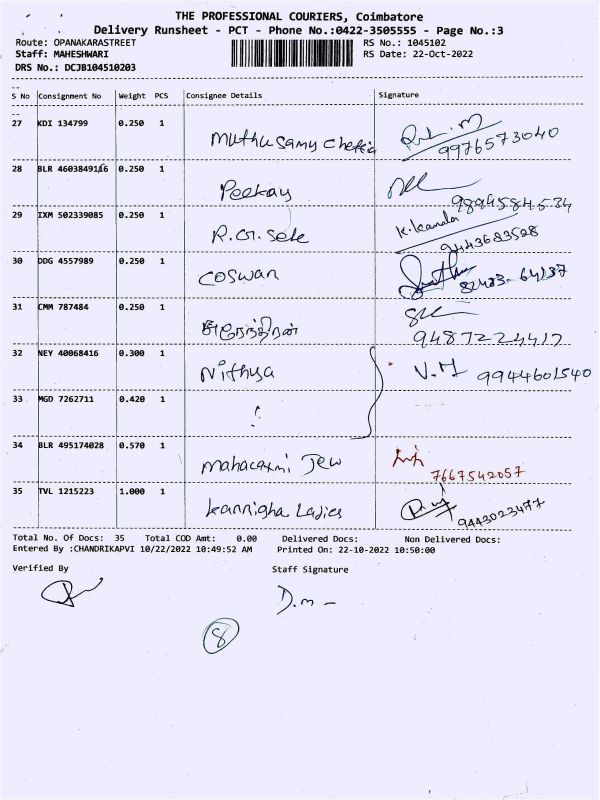 THE PROFESSIONAL COURIERS, Coimbatore
Delivery Runsheet - PCT - Phone No.:0422-3505555 - Page No.:3
Route: OPANAKARASTREET RS No.: 1045102
Staff: MAHESHWARI RS Date: 22-Oct-2022
DRS No.: DCJB104510203
S No Consignment No Weight PCS Consignee Details Signature
27 KDI 134799 0.250 1 Muthusamy Chettiar
9976573040
28 BLR 4603849116 0.250 1 Peekay
9894584534
29 IXM 502339085 0.250 1 R.G. Sele K.Kanda
9443683528
30 DDG 4557989 0.250 1 COSWAN
82483-64137
31 CMM 787484 0.250 1
9487224412
32 NEY 40068416 0.300 1 Nithya V.M 9944601540
33 MGD 7262711 0.420 1
34 BLR 495174028 0.570 1 Mahalaxmi Jew
7667542057
35 TVL 1215223 1.000 1 Kannigha Ladies
9443023477
Total No. Of Docs: 35 Total COD Amt: 0.00 Delivered Docs: Non Delivered Docs:
Entered By :CHANDRIKAPVI 10/22/2022 10:49:52 AM Printed On: 22-10-2022 10:50:00
Verified By Staff Signature
D.m -
8